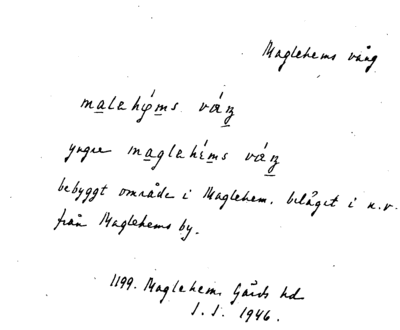 Maglehems vång
malehems váŋ
yngre maglehéms váŋ
bebyggt område i Maglehem. beläget i n.v.
från Maglehems by.
1199. Maglehem Gärds hd
1946.